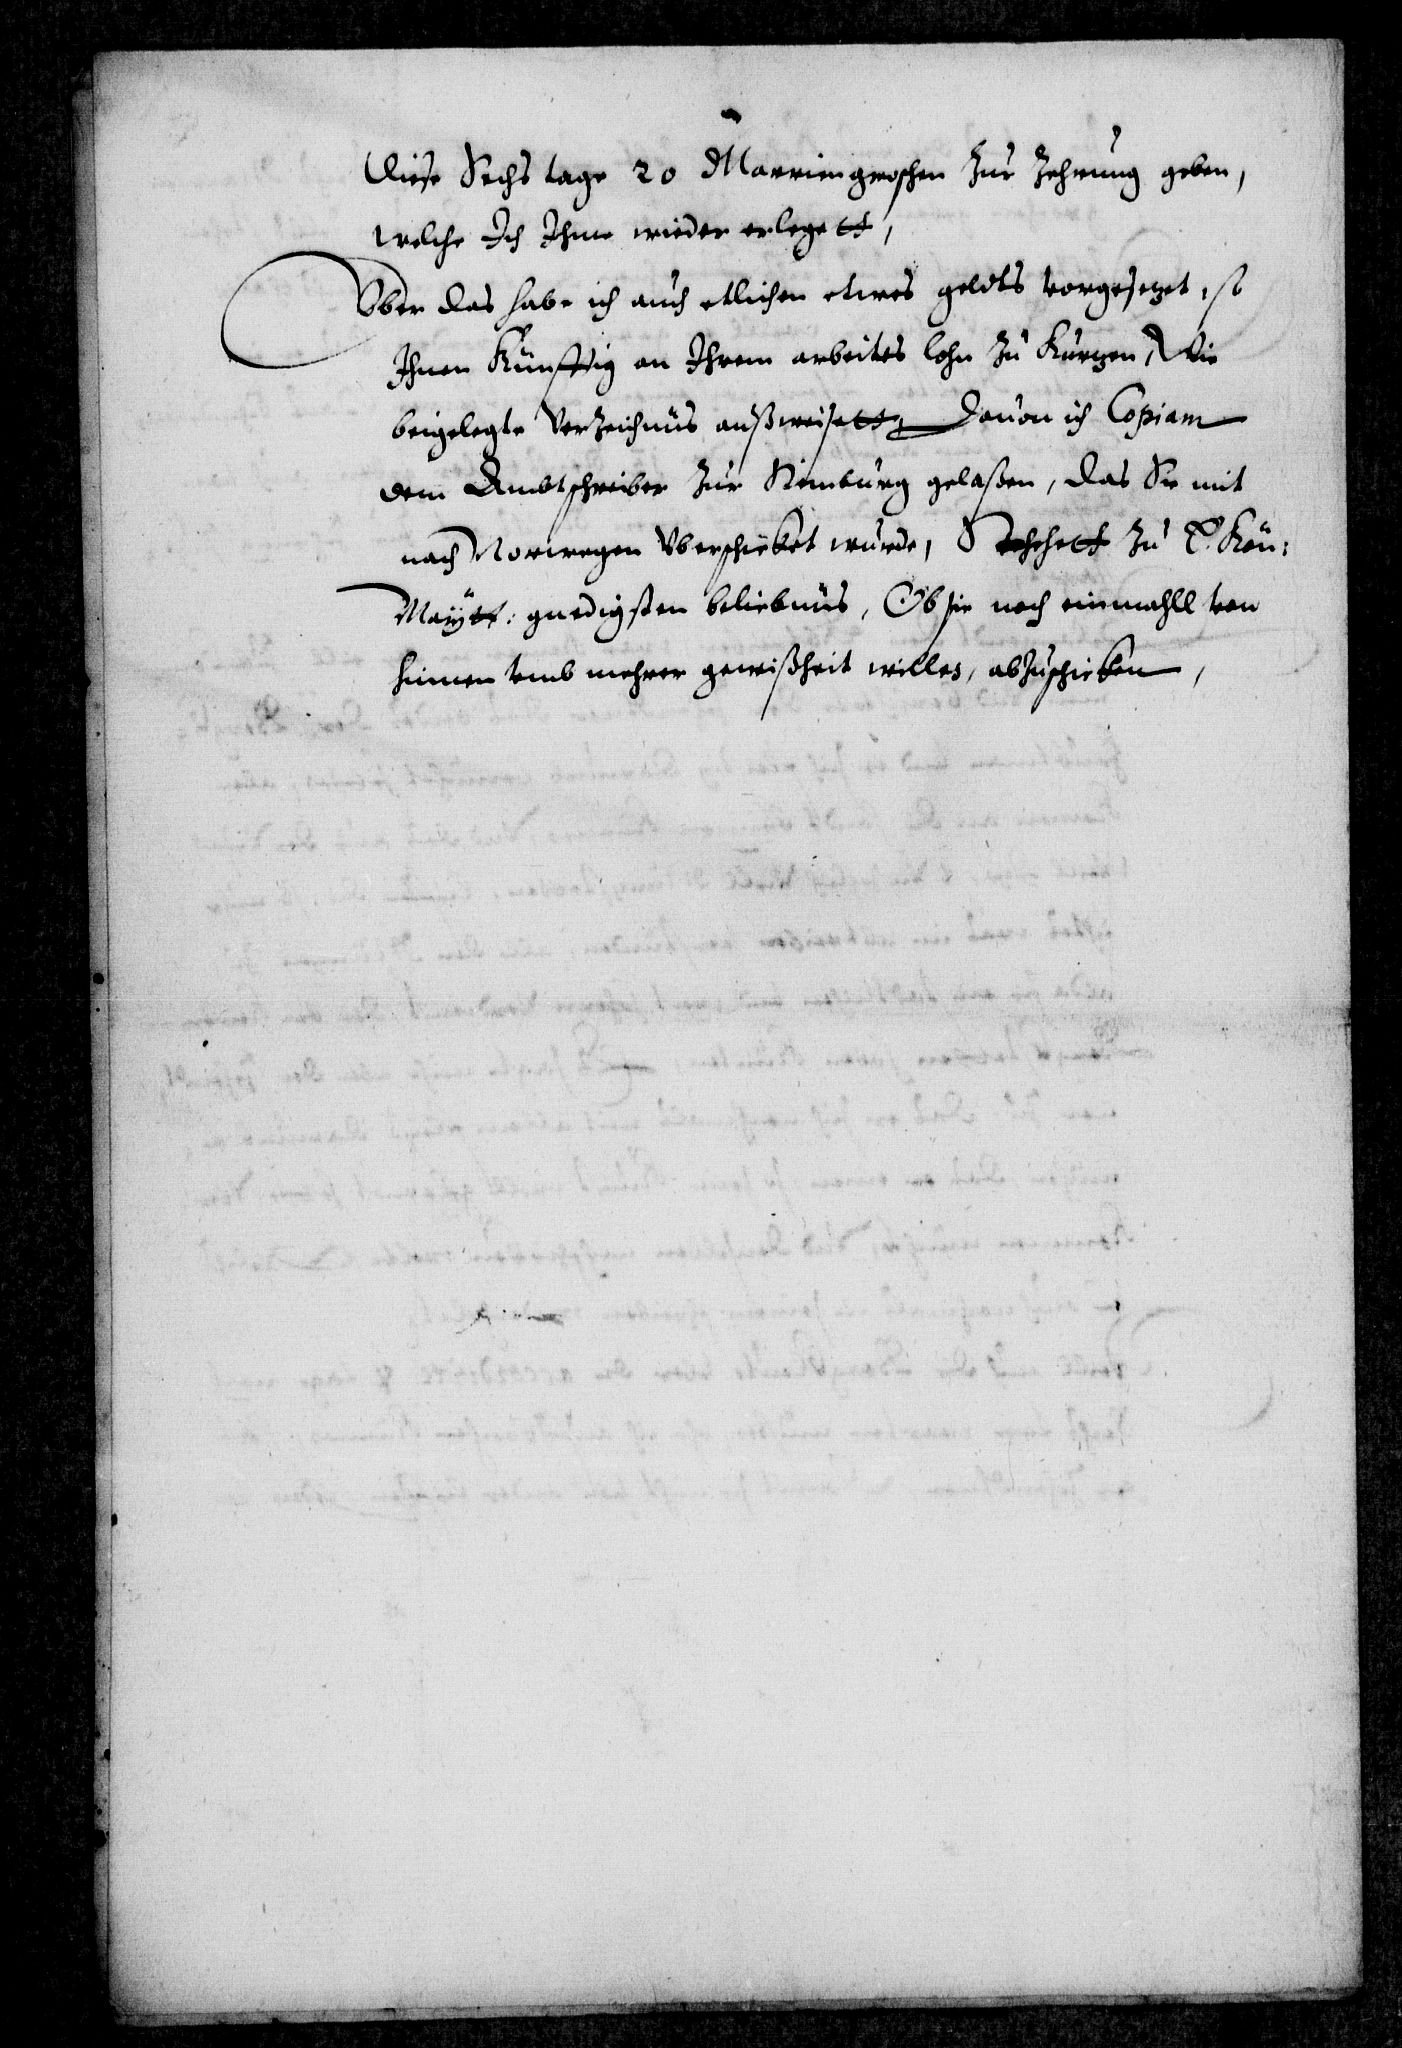 diese Sechs tage 20 Marriengroschen zur Zehrung geben,
welche Ich Ihme wieder erlegett,
Vber das habe ich auch etlichen etwas geldts vorgesetzet, so
Ihnen Künfftig an Ihrem arbeites lohn zu Kurtzen, Wie
beigelegte Verzeichnüs außweisett, Dauon ich Copiam
dem Ambtschreiber zur Steinburg gelaßen, das Sie mit
nach Norwegen vberschicket wurde, Stehett zu E. Kön:
Maÿtt: gnedigsten beliebnüs, Ob sie noch einmahll von
hinnen vmb mehrer gewißheit willes, abzuschicken,